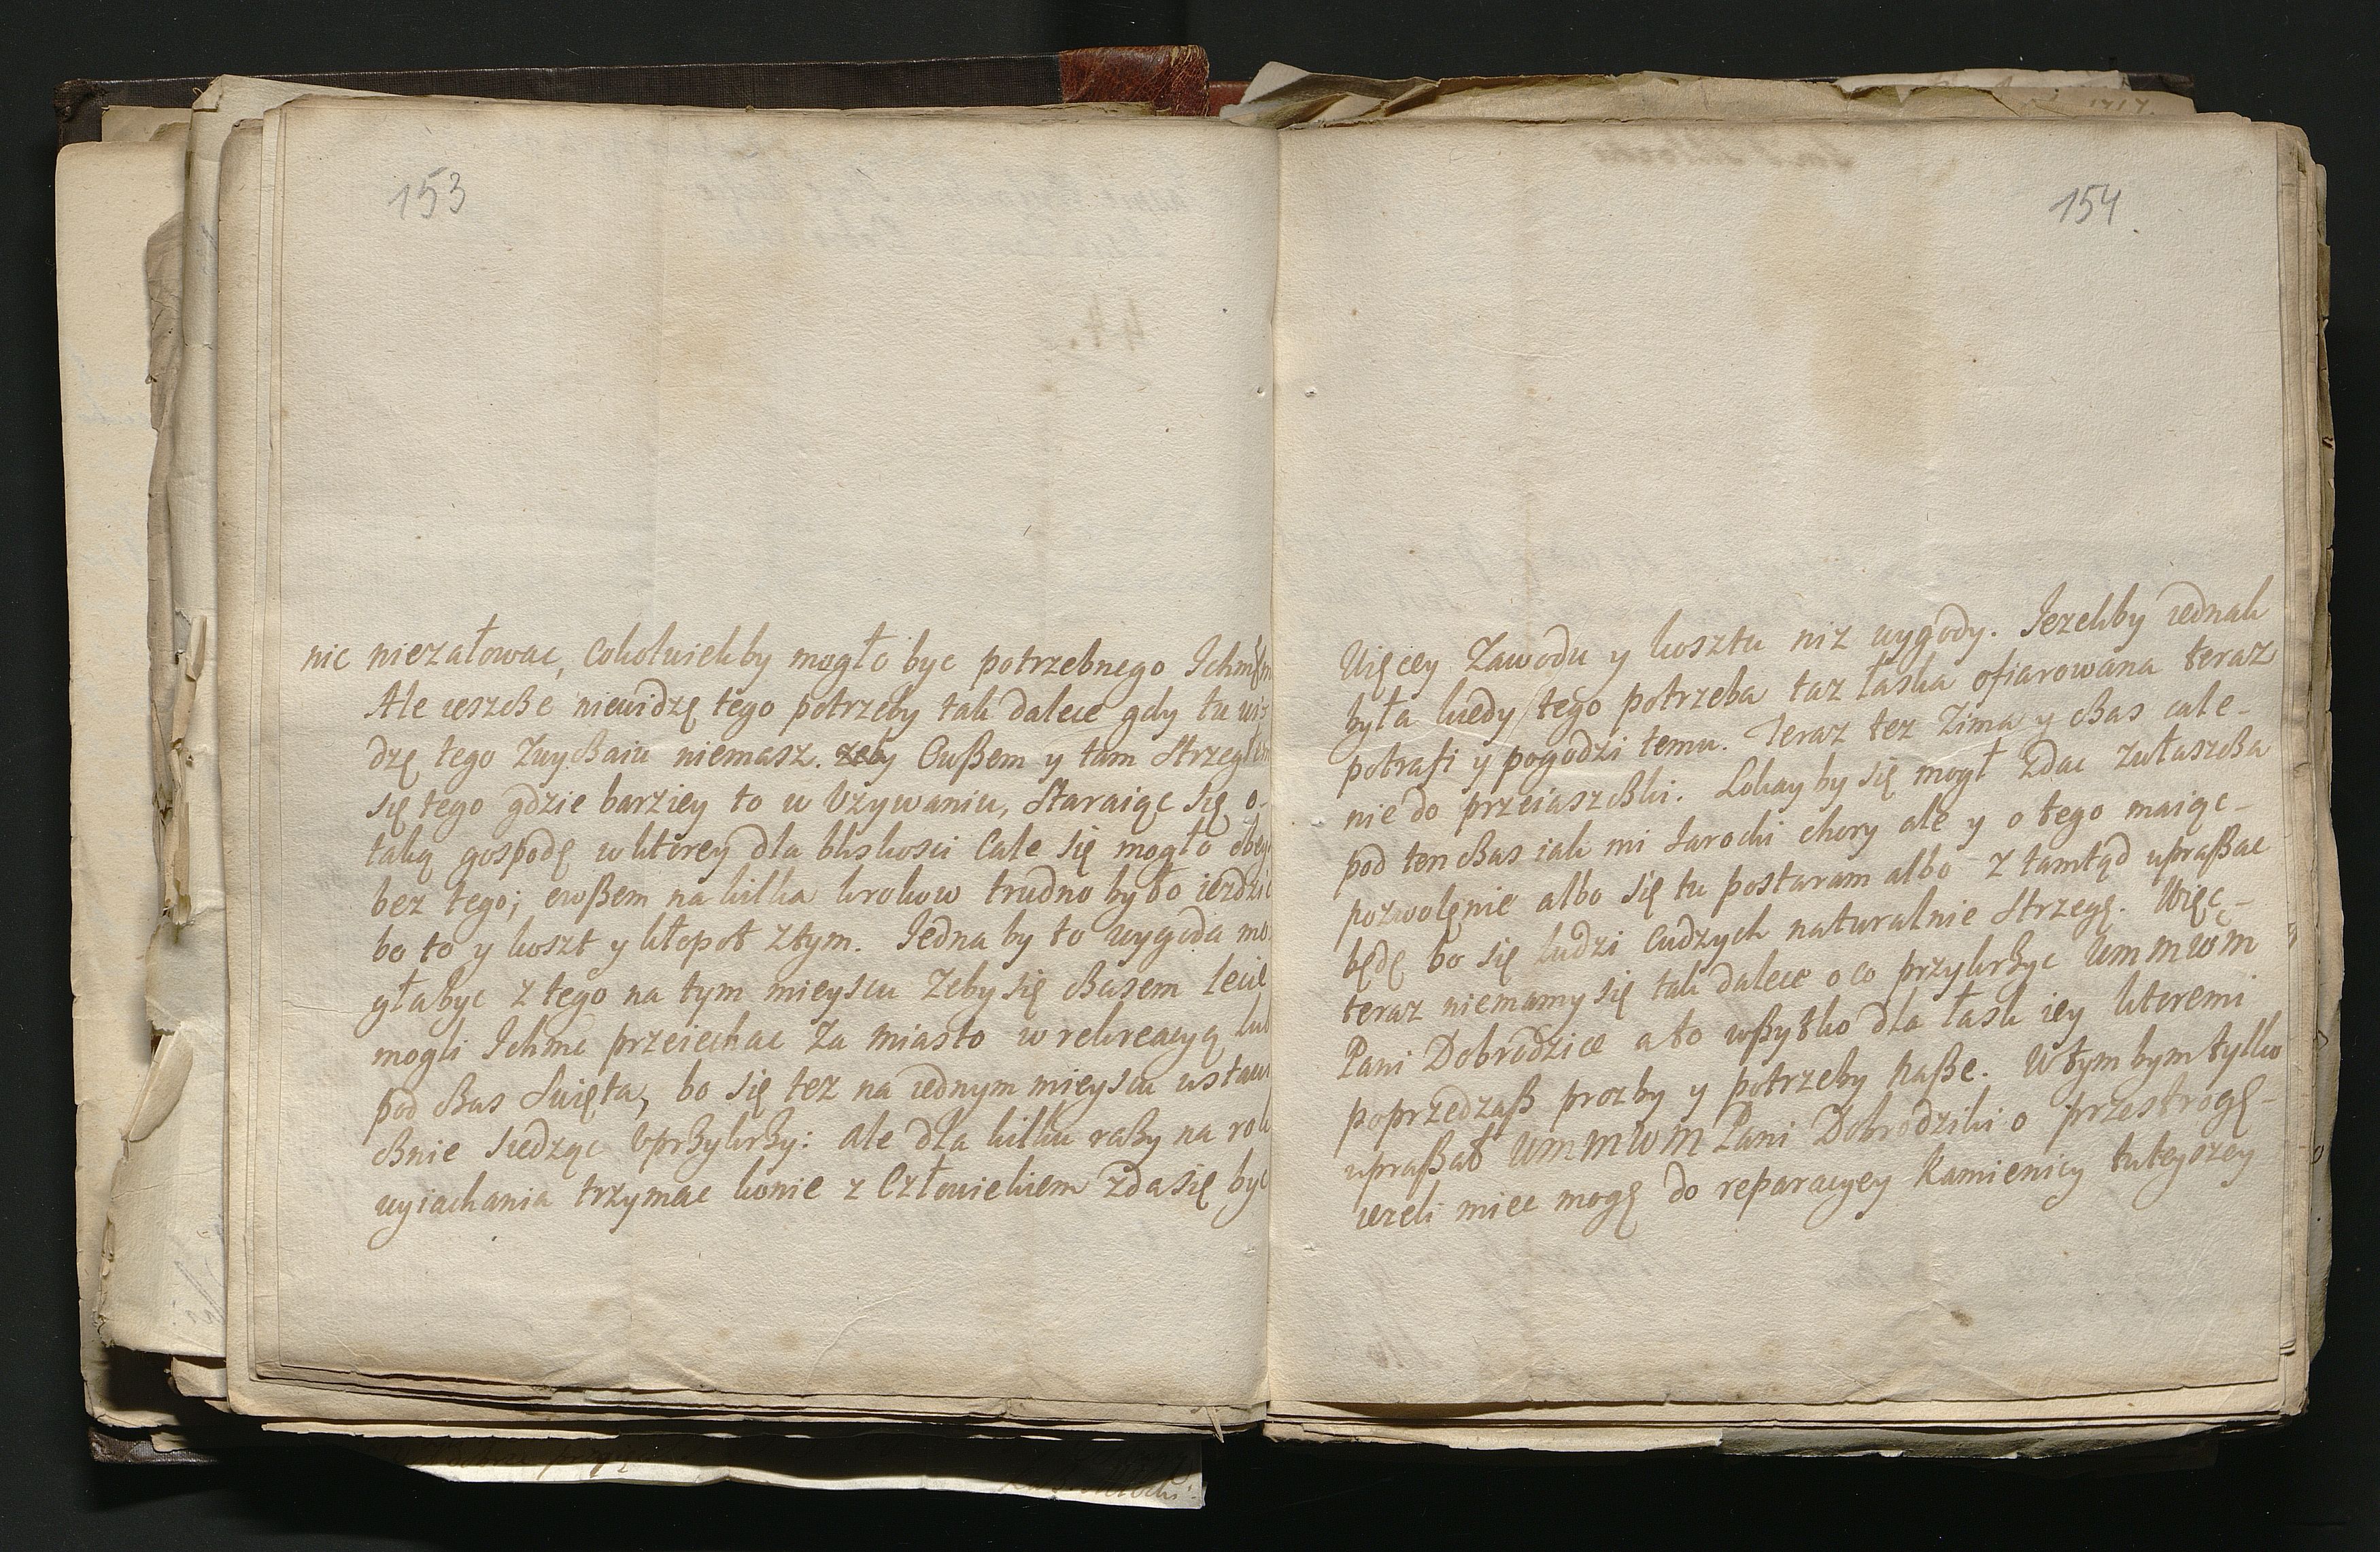 153
nic niezałowac, cokolwiekby mogło byc potrzebnego Ichm
Ale ieszcze niewidzę tego potrzeby tak dalece gdy tu wi-
dzę tego zwyczaiu niemasz. Owszem y tam strzegłem
się tego gdzie barziey to w vzywaniu, staraiąc się o
taką gospodę w ktorey dla bliskosci cale się mogło obey
bez tego; owszem na kilka krokow trudno było iezdzic
bo to y koszt y kłopot ztym. Jedna by to wygoda mo-
głabyc z tego na tym mieyscu zeby się czasem
mogli Ichmc przeiechac za miasto w rekreacyą lub
pod czas swięta, bo się tez na iednym mieyscu ustaw
cznie siedząc vprzykrzy: ale dla kilku razy na rok
wyiachania trzymac konie z człowiekiem zda się byc
154
Więcey zawodu y kosztu niz wygody. Iezeliby iednak
była kiedy tego potrzeba taz łaska ofiarowana teraz
potrafi y pogodzi temu. Teraz tez zima y czas cale-
nie do przeiaszczki. Lokay by się mogł zdac zwłaszcza
pod ten czas iak mi Jarocki chory ale y o tego maiąc-
pozwolęnie albo się tu postaram albo z tamtąd upraszac
będę bo się ludzi cudzych naturalnie strzegę. Więc-
teraz niemamy się tak dalece o co przykrzyc WMMWM
Pani Dobrodzice a to wszytko dla łask iey ktoremi
poprzedzasz prozby y potrzeby nasze. W tym bym tylko
upraszał WMMWM Pani Dobrodziki o przestrogę-
iezeli miec mogę do reparacyey Kamienicy tuteyszey